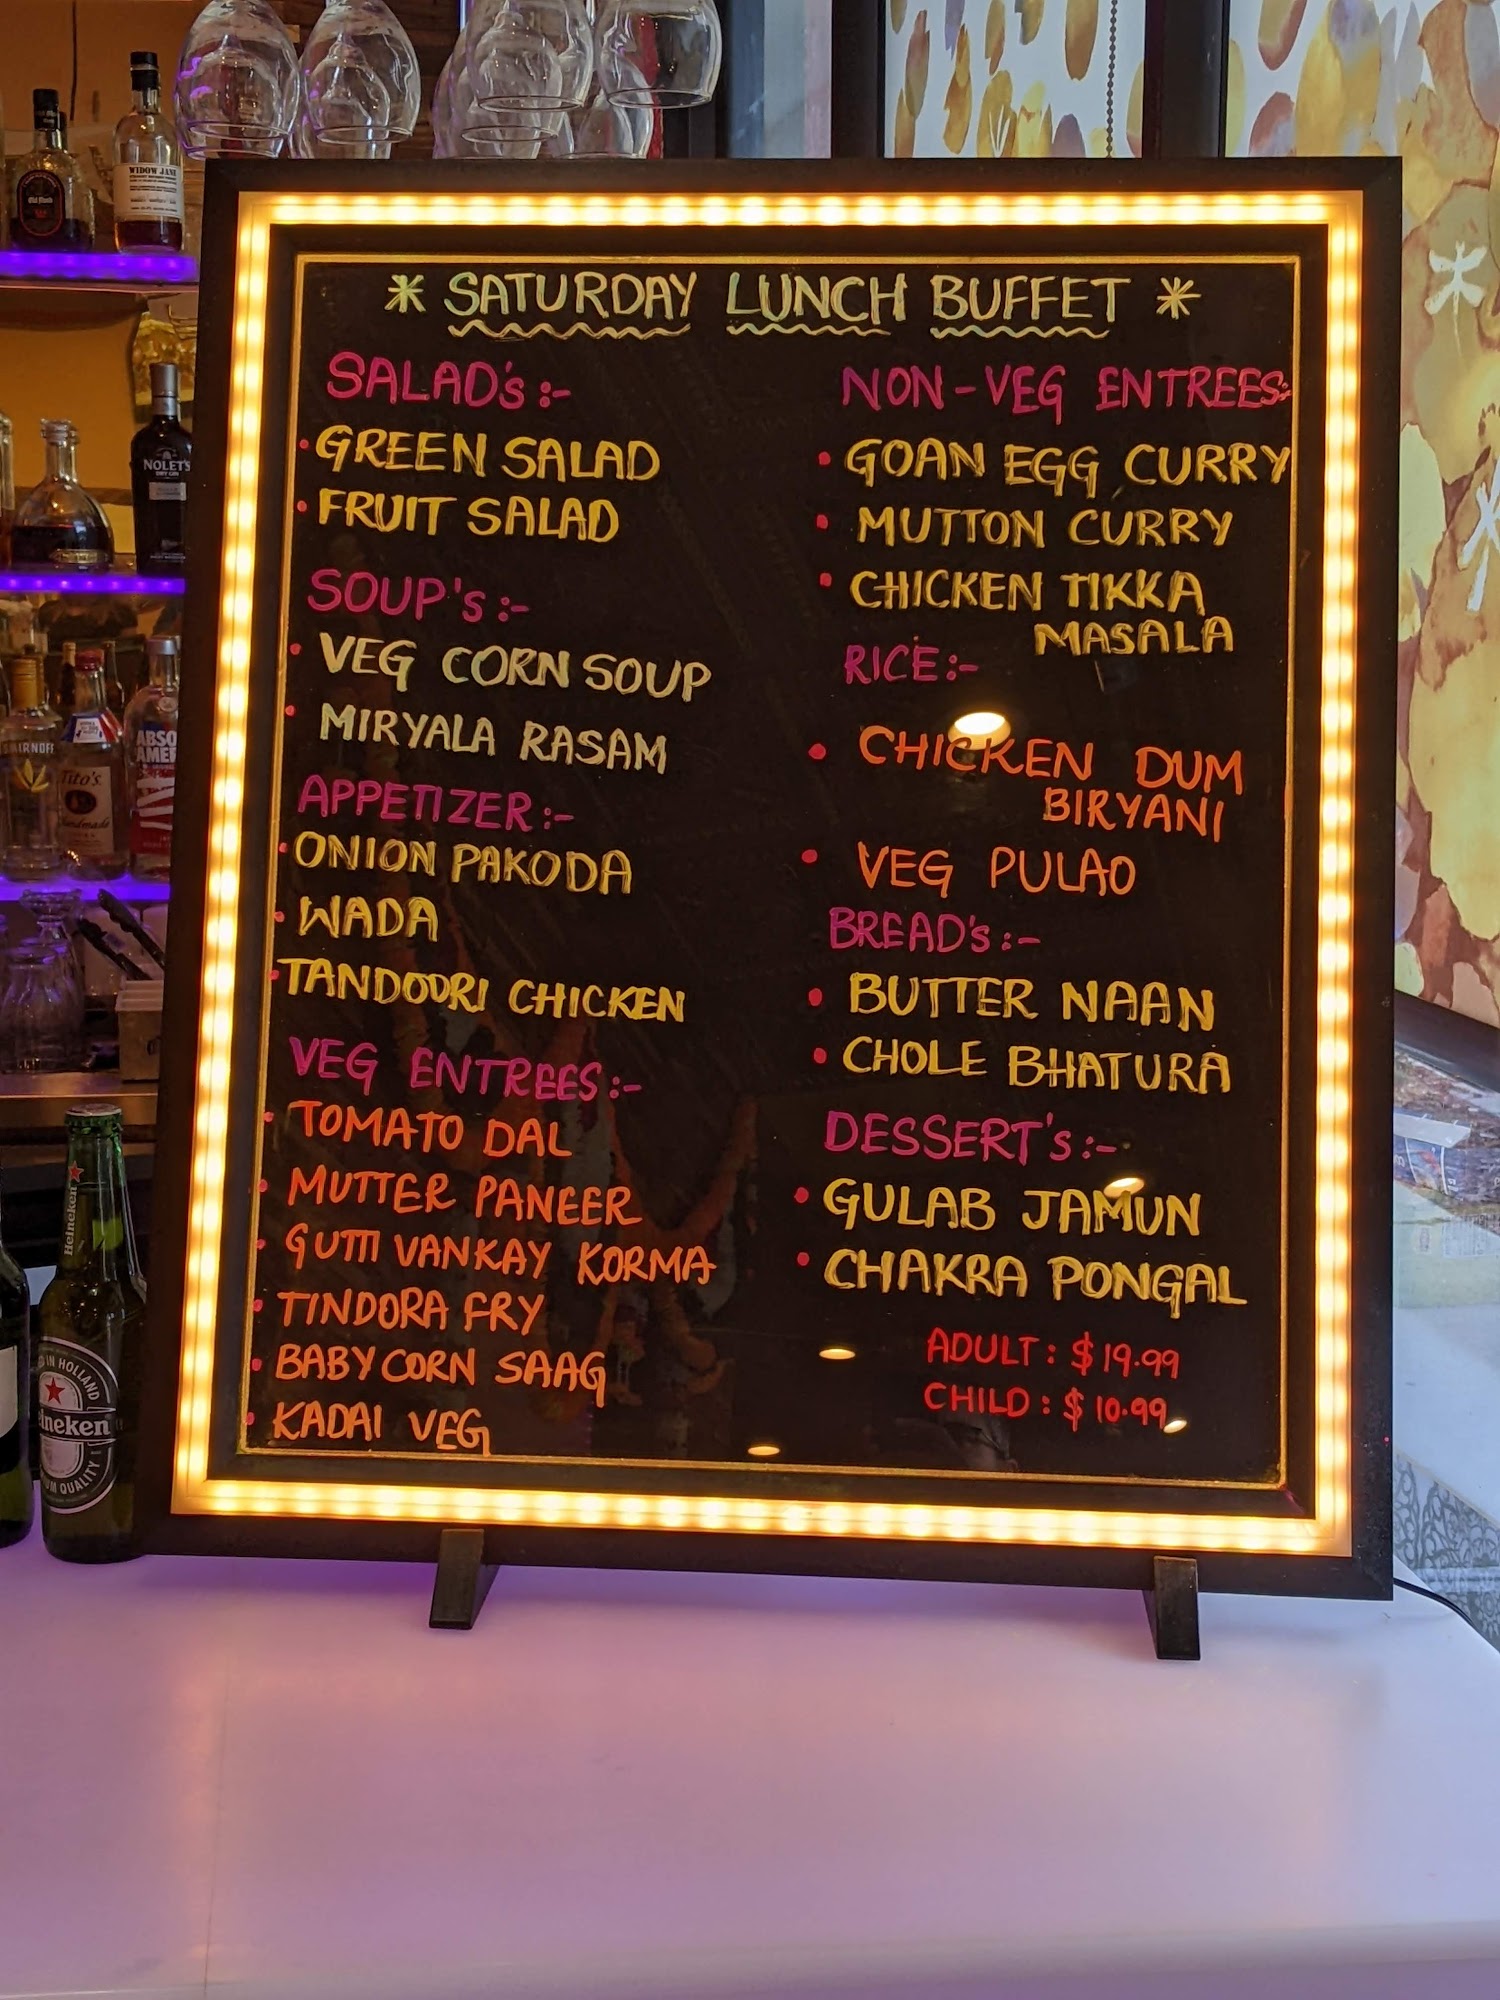 * SATURDAY LUNCH BUFFET *
SALAD's :-
• GREEN SALAD
• FRUIT SALAD
SOUP's :-
• VEG CORN SOUP
• MIRYALA RASAM
APPETIZER :-
• ONION PAKODA
• WADA
• TANDOORI CHICKEN
VEG ENTREES :-
• TOMATO DAL
• MUTTER PANEER
• GUTTI VANKAY KORMA
• TINDORA FRY
• BABY CORN SAAG
• KADAI VEG
NON-VEG ENTREES:
• GOAN EGG CURRY
• MUTTON CURRY
• CHICKEN TIKKA
MASALA
RICE :-
• CHICKEN DUM
BIRYANI
• VEG PULAO
BREAD's :-
• BUTTER NAAN
• CHOLE BHATURA
DESSERT's :-
• GULAB JAMUN
• CHAKRA PONGAL
ADULT : $ 19.99
CHILD : $ 10.99
WIDOW JANE
NOLET'S
DRY GIN
SMIRNOFF
Tito's
Handmade
ABSO
AMER
Heineken
IN HOLLAND
QUALITY